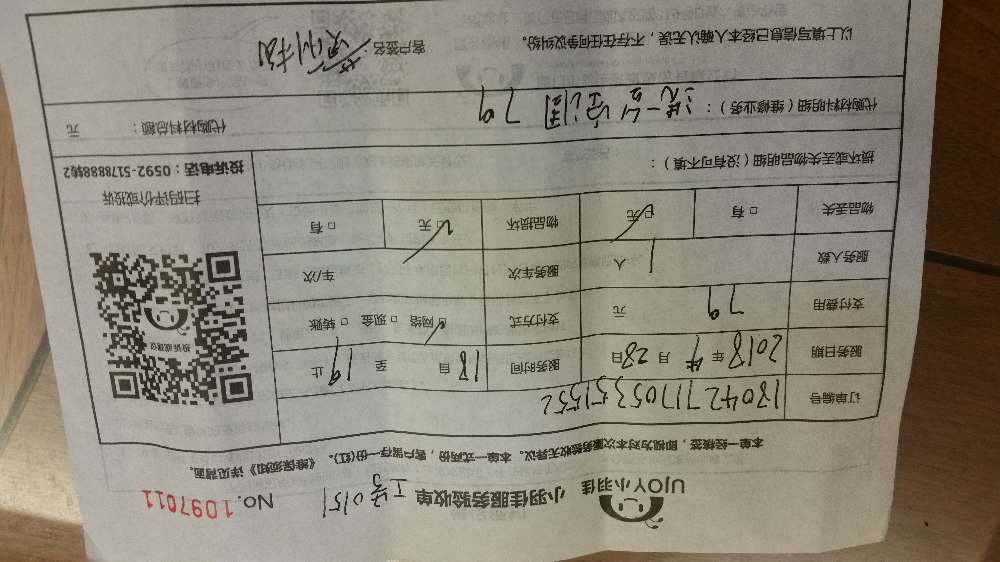 UJOY小羽佳 小羽佳服务验收单 工号0151 NO. 1097011
本单一经核签，即视为对本次服务验收无异议。本单一式两份，客户留存一份(红)。《维保须知》详见背面。
订单编号 18042717053551552
服务日期 2018年 4 月 28日 服务时间 18 自 至 19 止
支付费用 79 元 支付方式 ☑网络 □现金 □转账
服务人数 1 人 服务车次 车/次
物品丢失 □有 ☑无 物品损坏 ☑无 □有
投诉或建议
扫码评价或投诉
投诉电话：0592-5178888转2
损坏或丢失物品明细（没有可不填）：
代购材料明细（维修业务）： 洗一台空调 79
代购材料总额： 元
以上填写信息已经本人确认无误，不存在任何争议纠纷。
客户签名：